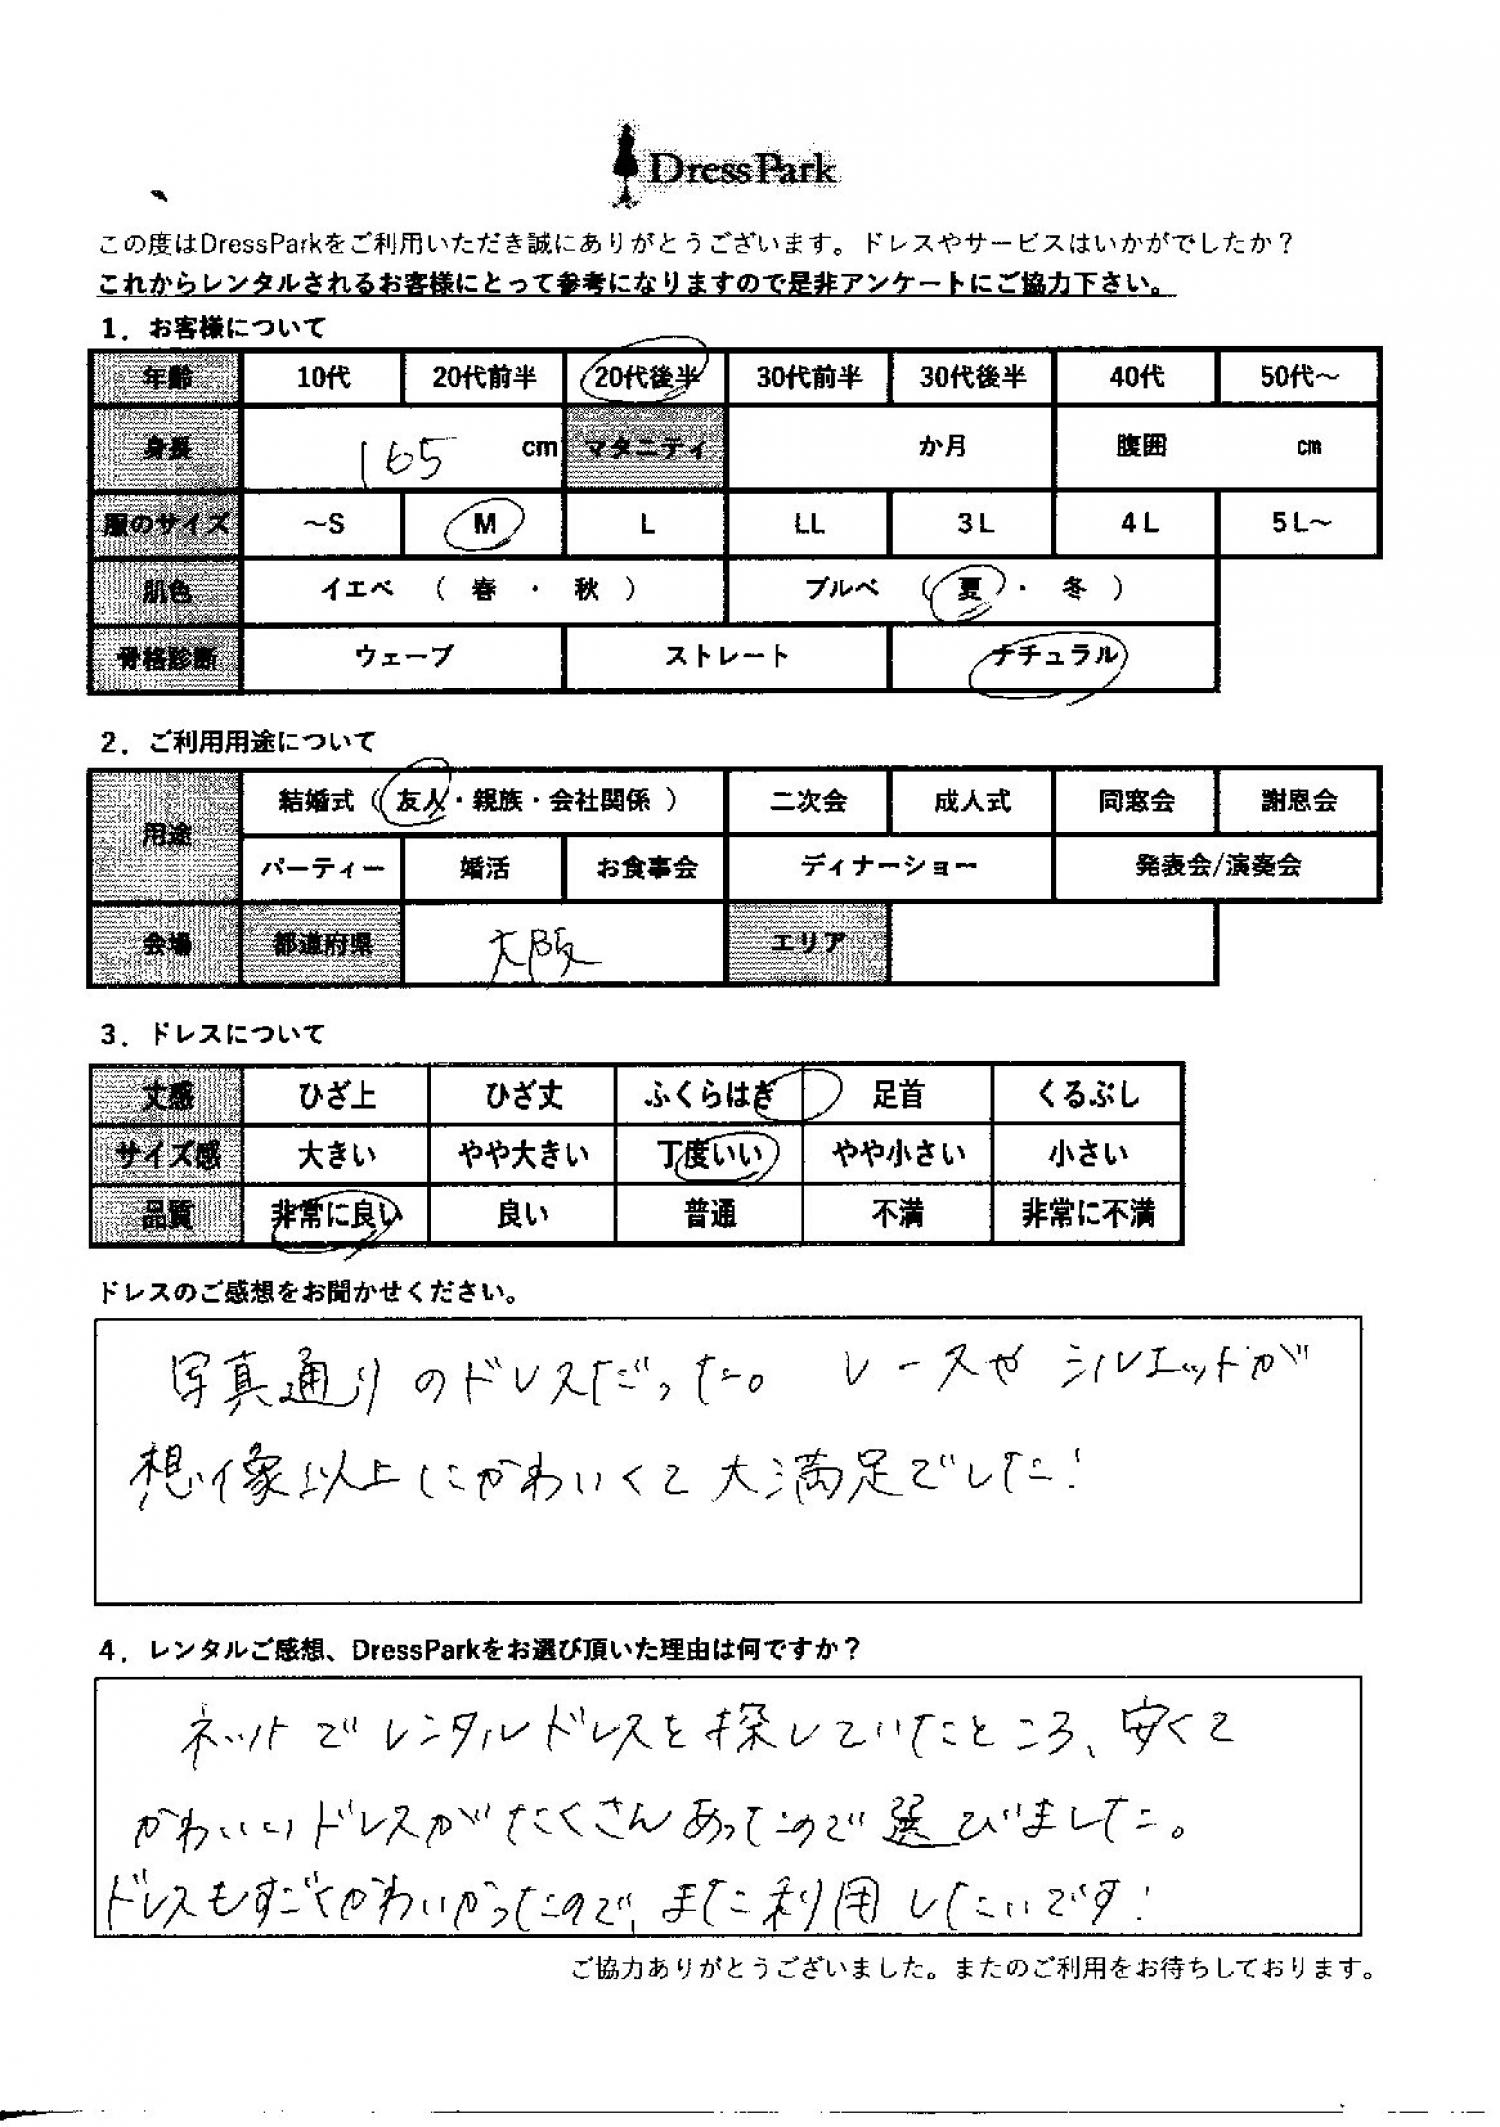 DressPark
この度はDressParkをご利用いただき誠にありがとうございます。ドレスやサービスはいかがでしたか？
これからレンタルされるお客様にとって参考になりますので是非アンケートにご協力下さい。
1．お客様について
年齢 10代 20代前半 20代後半 30代前半 30代後半 40代 50代～
身長 165 cm マタニティ か月 腹囲 cm
服のサイズ ～S M L LL 3L 4L 5L～
肌色 イエベ （ 春 ・ 秋 ） ブルベ （ 夏 ・ 冬 ）
骨格診断 ウェーブ ストレート ナチュラル
2．ご利用用途について
用途 結婚式（ 友人・親族・会社関係 ） 二次会 成人式 同窓会 謝恩会
パーティー 婚活 お食事会 ディナーショー 発表会/演奏会
会場 都道府県 大阪 エリア
3．ドレスについて
丈感 ひざ上 ひざ丈 ふくらはぎ 足首 くるぶし
サイズ感 大きい やや大きい 丁度いい やや小さい 小さい
品質 非常に良い 良い 普通 不満 非常に不満
ドレスのご感想をお聞かせください。
写真通りのドレスだった。レースやシルエットが
想像以上にかわいくて大満足でした！
4．レンタルご感想、DressParkをお選び頂いた理由は何ですか？
ネットでレンタルドレスを探していたところ、安くて
かわいいドレスがたくさんあったので選びました。
ドレスもすごくかわいかったので、また利用したいです！
ご協力ありがとうございました。またのご利用をお待ちしております。